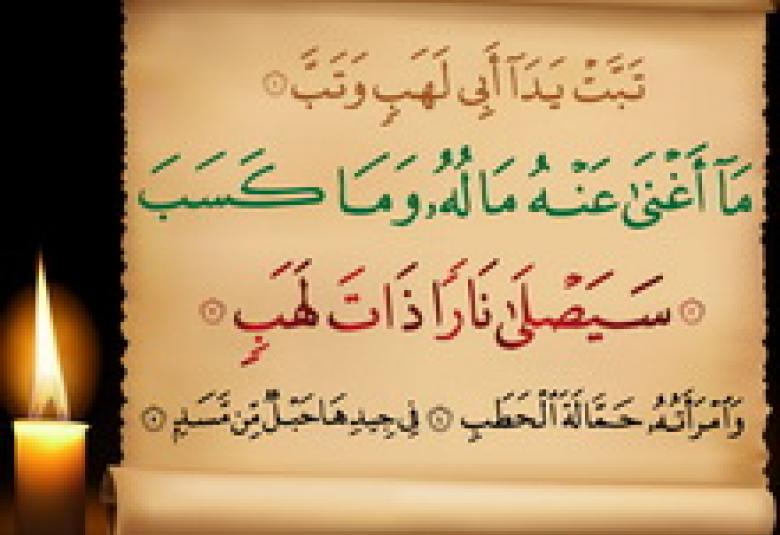 تَبَّتْ يَدَآ أَبِى لَهَبٍ وَتَبَّ ۝١
مَآ أَغْنَىٰ عَنْهُ مَالُهُۥ وَمَا كَسَبَ
۝٢ سَيَصْلَىٰ نَارًا ذَاتَ لَهَبٍ ۝٣
وَٱمْرَأَتُهُۥ حَمَّالَةَ ٱلْحَطَبِ ۝٤ فِى جِيدِهَا حَبْلٌ مِّن مَّسَدٍۭ ۝٥